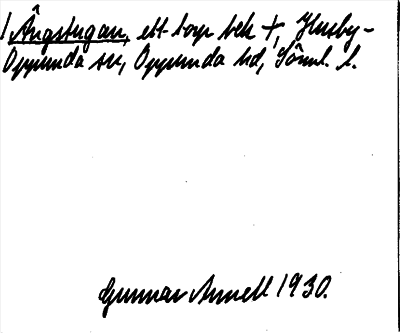 1 Ångstugan, ett torp bek †, Husby-
Oppunda sn, Oppunda hd, Sörml. l.
Gunnar Annell 1930.